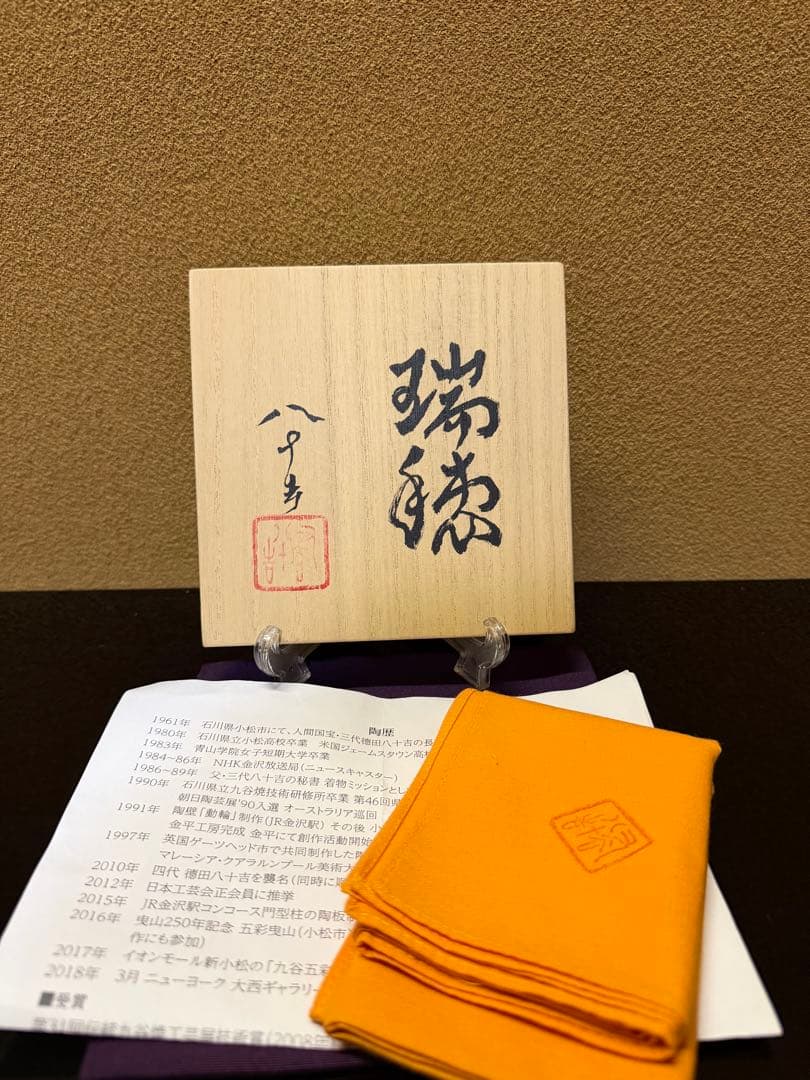 瑞穂
八十吉
陶歴
1961年 石川県小松市にて、人間国宝・三代徳田八十吉の長
1980年 石川県立小松高校卒業 米国ジェームスタウン高校
1983年 青山学院女子短期大学卒業
1984~86年 NHK金沢放送局(ニュースキャスター)
1986~89年 父・三代八十吉の秘書 着物ミッションとし
1990年 石川県立九谷焼技術研修所卒業 第46回県
朝日陶芸展'90入選 オーストラリア巡回
1991年 陶壁「動輪」制作(JR金沢駅) その後 小
金平工房完成 金平にて創作活動開始
1997年 英国ゲーツヘッド市で共同制作した陶
マレーシア・クアラルンプール美術大
2010年 四代 徳田八十吉を襲名(同時に
2012年 日本工芸会正会員に推挙
2015年 JR金沢駅コンコース門型柱の陶板
2016年 曳山250年記念 五彩曳山(小松市)
作にも参加)
2017年 イオンモール新小松の「九谷五彩
2018年 3月 ニューヨーク 大西ギャラリー
■受賞
第31回伝統九谷焼工芸展技術賞(2008年